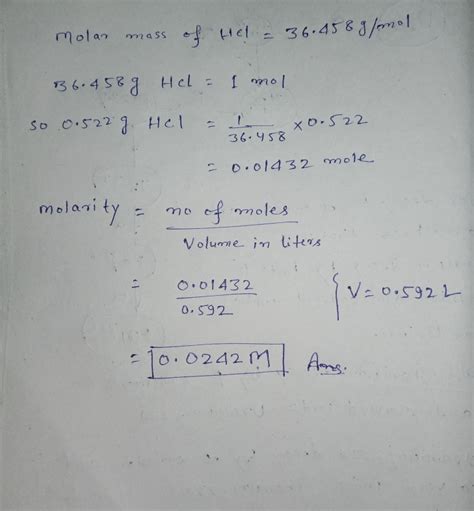 Molar mass of Hcl = 36.458 g/mol
36.458 g Hcl = 1 mol
so 0.522 g Hcl = 1/36.458 × 0.522
= 0.01432 mole
molarity = no of moles / Volume in liters
= 0.01432 / 0.592 { V = 0.592 L
= 0.0242 M Ans.